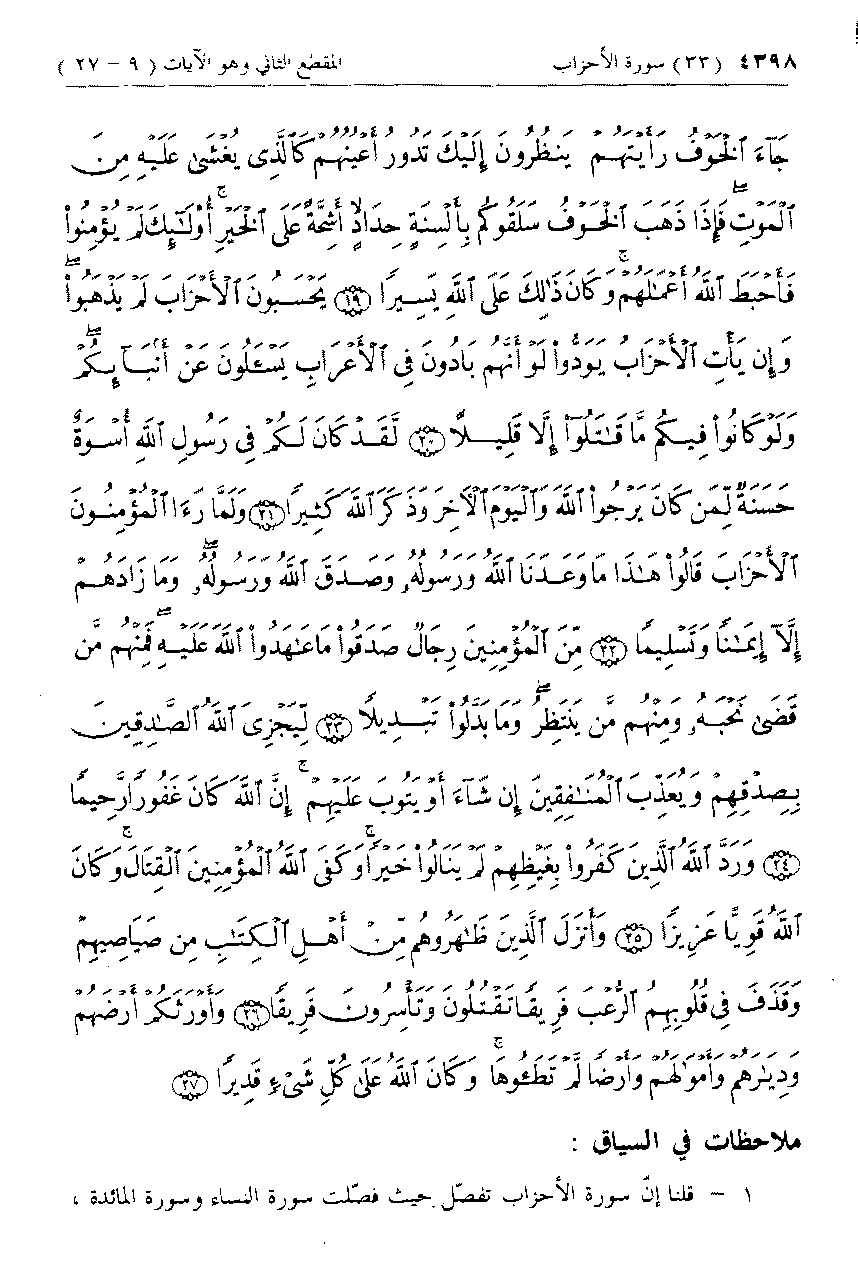 ٤٣٩٨ ( ٣٣ ) سورة الأحزاب المقطع الثاني وهو الآيات ( ٩ – ٢٧ )
جَآءَ ٱلْخَوْفُ رَأَيْتَهُمْ يَنظُرُونَ إِلَيْكَ تَدُورُ أَعْيُنُهُمْ كَٱلَّذِى يُغْشَىٰ عَلَيْهِ مِنَ
ٱلْمَوْتِ ۖ فَإِذَا ذَهَبَ ٱلْخَوْفُ سَلَقُوكُم بِأَلْسِنَةٍ حِدَادٍ أَشِحَّةً عَلَى ٱلْخَيْرِ ۚ أُو۟لَـٰٓئِكَ لَمْ يُؤْمِنُوا۟
فَأَحْبَطَ ٱللَّهُ أَعْمَـٰلَهُمْ ۚ وَكَانَ ذَٰلِكَ عَلَى ٱللَّهِ يَسِيرًا ﴿١٩﴾ يَحْسَبُونَ ٱلْأَحْزَابَ لَمْ يَذْهَبُوا۟ ۖ
وَإِن يَأْتِ ٱلْأَحْزَابُ يَوَدُّوا۟ لَوْ أَنَّهُم بَادُونَ فِى ٱلْأَعْرَابِ يَسْـَٔلُونَ عَنْ أَنۢبَآئِكُمْ ۖ
وَلَوْ كَانُوا۟ فِيكُم مَّا قَـٰتَلُوٓا۟ إِلَّا قَلِيلًا ﴿٢٠﴾ لَّقَدْ كَانَ لَكُمْ فِى رَسُولِ ٱللَّهِ أُسْوَةٌ
حَسَنَةٌ لِّمَن كَانَ يَرْجُوا۟ ٱللَّهَ وَٱلْيَوْمَ ٱلْـَٔاخِرَ وَذَكَرَ ٱللَّهَ كَثِيرًا ﴿٢١﴾ وَلَمَّا رَءَا ٱلْمُؤْمِنُونَ
ٱلْأَحْزَابَ قَالُوا۟ هَـٰذَا مَا وَعَدَنَا ٱللَّهُ وَرَسُولُهُۥ وَصَدَقَ ٱللَّهُ وَرَسُولُهُۥ ۖ وَمَا زَادَهُمْ
إِلَّآ إِيمَـٰنًا وَتَسْلِيمًا ﴿٢٢﴾ مِّنَ ٱلْمُؤْمِنِينَ رِجَالٌ صَدَقُوا۟ مَا عَـٰهَدُوا۟ ٱللَّهَ عَلَيْهِ ۖ فَمِنْهُم مَّن
قَضَىٰ نَحْبَهُۥ وَمِنْهُم مَّن يَنتَظِرُ ۖ وَمَا بَدَّلُوا۟ تَبْدِيلًا ﴿٢٣﴾ لِّيَجْزِىَ ٱللَّهُ ٱلصَّـٰدِقِينَ
بِصِدْقِهِمْ وَيُعَذِّبَ ٱلْمُنَـٰفِقِينَ إِن شَآءَ أَوْ يَتُوبَ عَلَيْهِمْ ۚ إِنَّ ٱللَّهَ كَانَ غَفُورًا رَّحِيمًا
﴿٢٤﴾ وَرَدَّ ٱللَّهُ ٱلَّذِينَ كَفَرُوا۟ بِغَيْظِهِمْ لَمْ يَنَالُوا۟ خَيْرًا ۚ وَكَفَى ٱللَّهُ ٱلْمُؤْمِنِينَ ٱلْقِتَالَ ۚ وَكَانَ
ٱللَّهُ قَوِيًّا عَزِيزًا ﴿٢٥﴾ وَأَنزَلَ ٱلَّذِينَ ظَـٰهَرُوهُم مِّنْ أَهْلِ ٱلْكِتَـٰبِ مِن صَيَاصِيهِمْ
وَقَذَفَ فِى قُلُوبِهِمُ ٱلرُّعْبَ فَرِيقًا تَقْتُلُونَ وَتَأْسِرُونَ فَرِيقًا ﴿٢٦﴾ وَأَوْرَثَكُمْ أَرْضَهُمْ
وَدِيَـٰرَهُمْ وَأَمْوَٰلَهُمْ وَأَرْضًا لَّمْ تَطَـُٔوهَا ۚ وَكَانَ ٱللَّهُ عَلَىٰ كُلِّ شَىْءٍ قَدِيرًا ﴿٢٧﴾
ملاحظات في السياق :
١ – قلنا إنّ سورة الأحزاب تفصّل حيث فصّلت سورة النساء وسورة المائدة ،